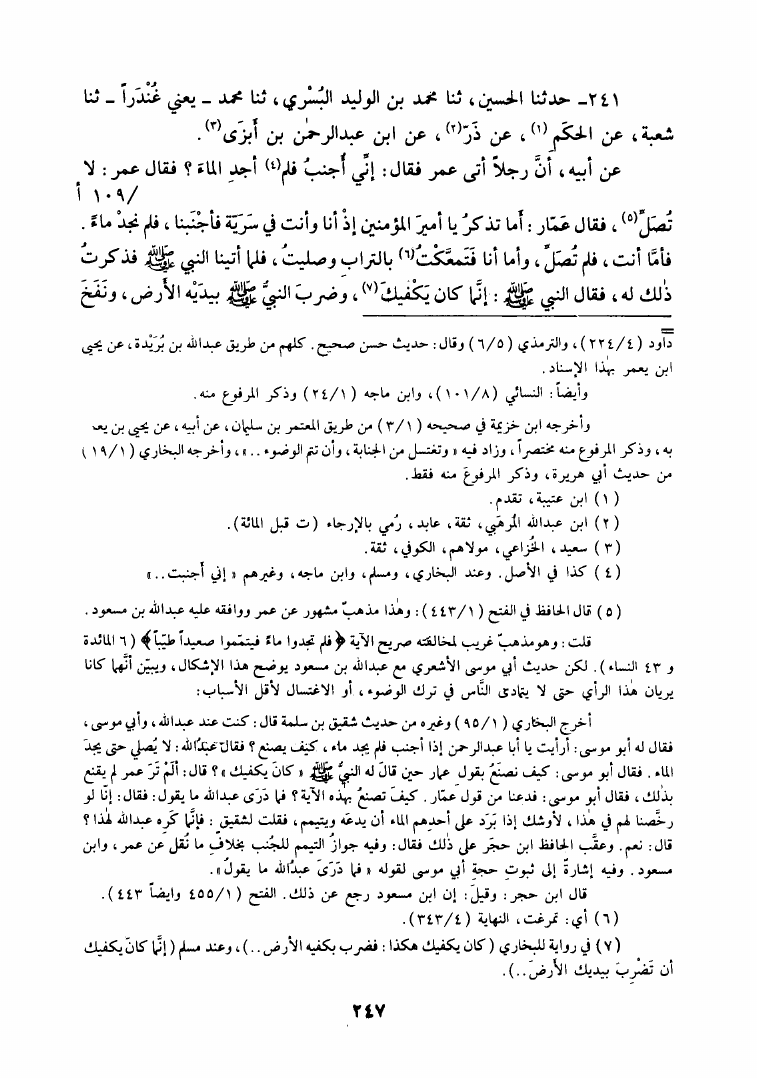 ٢٤١- حدثنا الحسين، ثنا محمد بن الوليد البُسْري، ثنا محمد - يعني غُنْدَراً - ثنا
شعبة، عن الحكَم (١)، عن ذَرّ(٢)، عن ابن عبدالرحمٰن بن أَبزَى(٣).
عن أبيه، أنَّ رجلاً أتى عمر فقال: إنِّي أُجنبُ فلم(٤) أجدِ الماءَ؟ فقال عمر: لا
/١٠٩ أ
تُصَلِّ(٥)، فقال عمّار: أَما تذكرُ يا أميرَ المؤمنين إذْ أنا وأنت في سَريّة فأجْنَبنا، فلم نجدْ ماءً.
فأمَّا أنت، فلم تُصَلِّ، وأما أنا فَتَمعَّكْتُ(٦) بالترابِ وصليتُ، فلما أتينا النبي ﷺ فذكرتُ
ذلك له، فقال النبي ﷺ: إنَّما كان يَكْفيكَ(٧)، وضربَ النبيُّ ﷺ بيدَيْه الأرض، ونَفَخَ
=
داود (٢٢٤/٤)، والترمذي (٦/٥) وقال: حديث حسن صحيح. كلهم من طريق عبدالله بن بُرَيْدة، عن يحيى
ابن يعمر بهذا الإسناد.
وأيضاً: النسائي (١٠١/٨)، وابن ماجه (٢٤/١) وذكر المرفوع منه.
وأخرجه ابن خزيمة في صحيحه (٣/١) من طريق المعتمر بن سليمان، عن أبيه، عن يحيى بن يعـ
به، وذكر المرفوع منه مختصراً، وزاد فيه « وتغتسل من الجنابة، وأن تتم الوضوء ..»، وأخرجه البخاري (١٩/١)
من حديث أبي هريرة، وذكر المرفوعَ منه فقط.
(١) ابن عتيبة، تقدم.
(٢) ابن عبدالله المُرهَبي، ثقة، عابد، رُمي بالإرجاء (ت قبل المائة).
(٣) سعيد، الخُزاعي، مولاهم، الكوفي، ثقة.
(٤) كذا في الأصل. وعند البخاري، ومسلم، وابن ماجه، وغيرهم « إني أجنبت..»
(٥) قال الحافظ في الفتح (٤٤٣/١): وهٰذا مذهبٌ مشهور عن عمر ووافقه عليه عبدالله بن مسعود.
قلت: وهومذهبٌ غريب لمخالفته صريح الآية ﴿فلم تجدوا ماءً فيتمّموا صعيداً طيّباً﴾ (٦ المائدة
و ٤٣ النساء). لكن حديث أبي موسى الأشعري مع عبدالله بن مسعود يوضح هذا الإشكال، ويبيّن أنَّهما كانا
يريان هٰذا الرأي حتى لا يتمادى النَّاس في ترك الوضوء، أو الاغتسال لأقل الأسباب:
أخرج البخاري (٩٥/١) وغيره من حديث شقيق بن سلمة قال: كنت عند عبدالله، وأبي موسى،
فقال له أبو موسى: أرأيت يا أبا عبدالرحمن إذا أجنب فلم يجد ماء، كيف يصنع؟ فقال عبدُالله: لا يُصلي حتى يجدَ
الماء. فقال أبو موسى: كيف نصنَعُ بقولِ عمار حين قالَ له النبيُّ ﷺ « كانَ يكفيك »؟ قال: ألَمْ تَرَ عمر لم يقنع
بذلك، فقال أبو موسى: فدعنا من قول عمّار. كيفَ تصنعُ بهذه الآية؟ فما دَرَى عبدالله ما يقول: فقال: إنّا لو
رخَّصنا لهم في هٰذا، لأوشك إذا بَرَد على أحدِهم الماء أن يدعَه ويتيمم، فقلت لشقيق: فإنَّما كَرِه عبدالله لهٰذا؟
قال: نعم. وعقَّب الحافظ ابن حجَر على ذلك فقال: وفيه جوازُ التيمم للجُنب بخلافِ ما نُقل عن عمر، وابن
مسعود. وفيه إشارةٌ إلى ثبوتِ حجةِ أبي موسى لقوله « فما دَرَىَ عبدُالله ما يقولُ».
قال ابن حجر: وقيلَ: إن ابن مسعود رجع عن ذلك. الفتح (٤٥٥/١ وايضاً ٤٤٣).
(٦) أي: تمرغت، النهاية (٣٤٣/٤).
(٧) في رواية للبخاري (كان يكفيك هكذا: فضرب بكفيه الأرض..)، وعند مسلم (إنَّما كانَ يكفيك
أن تَضْرِبَ بيديك الأرضَ..).
٢٤٧